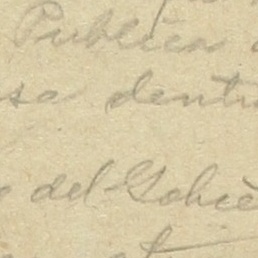 Publica
sa dentr
del Gobie